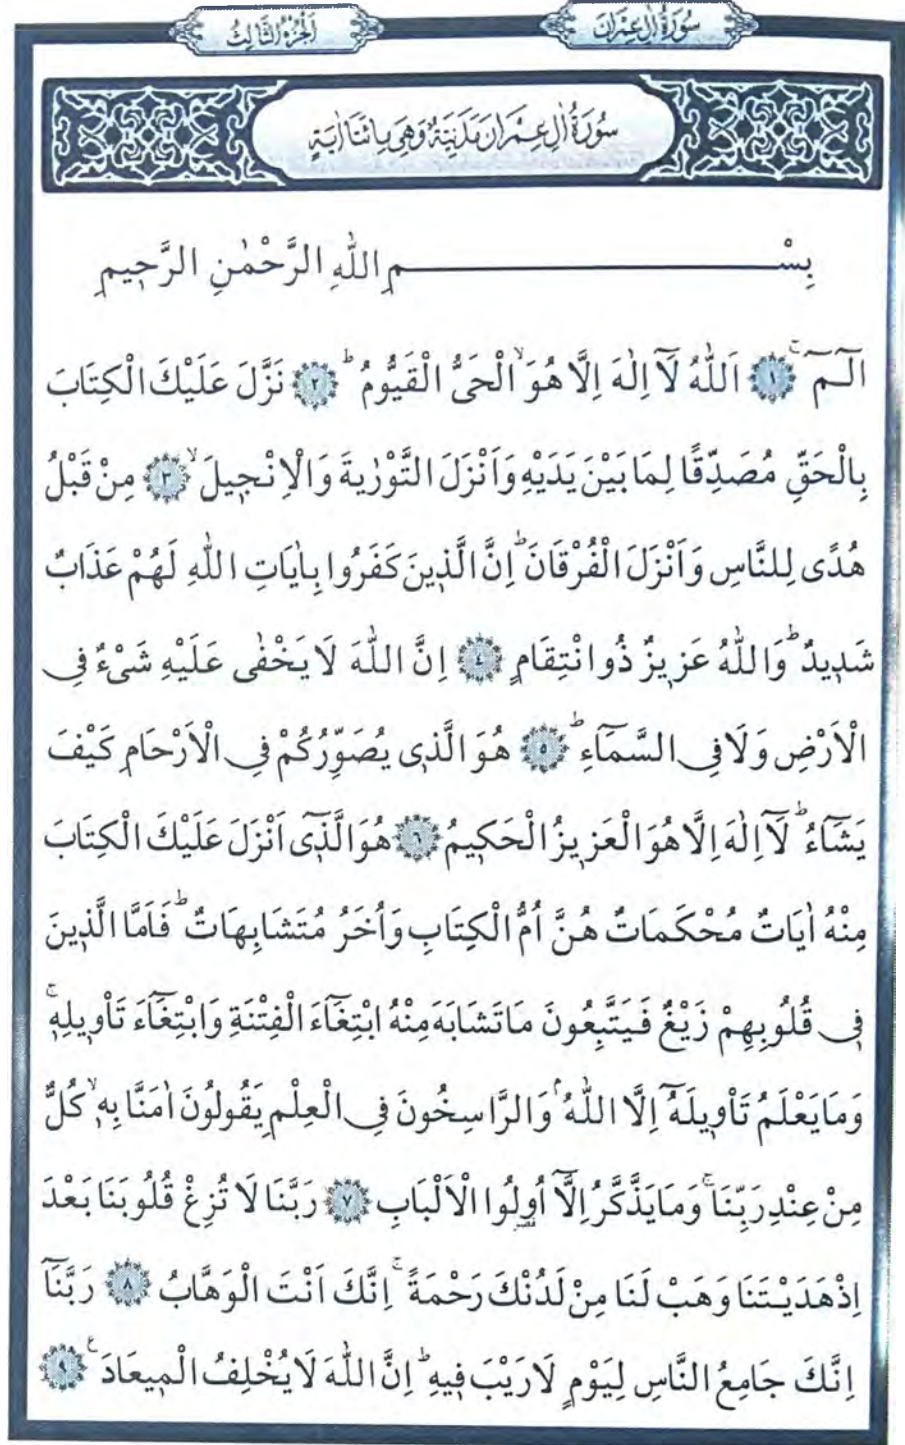 سُورَةُ اٰلِ عِمْرَانَ
اَلْجُزْءُ الثَّالِثُ
سُورَةُ اٰلِ عِمْرَانَ مَدَنِيَّةٌ وَهِيَ مِائَتَا اٰيَةٍ
بِسْمِ اللّٰهِ الرَّحْمٰنِ الرَّحِيمِ
الٓمٓ ۚ ﴿١﴾ اَللّٰهُ لَٓا اِلٰهَ اِلَّا هُوَۙ الْحَىُّ الْقَيُّومُ ۜؕ ﴿٢﴾ نَزَّلَ عَلَيْكَ الْكِتَابَ
بِالْحَقِّ مُصَدِّقًا لِمَا بَيْنَ يَدَيْهِ وَاَنْزَلَ التَّوْرٰيةَ وَالْاِنْجٖيلَۙ ﴿٣﴾ مِنْ قَبْلُ
هُدًى لِلنَّاسِ وَاَنْزَلَ الْفُرْقَانَؕ اِنَّ الَّذٖينَ كَفَرُوا بِاٰيَاتِ اللّٰهِ لَهُمْ عَذَابٌ
شَدٖيدٌؕ وَاللّٰهُ عَزٖيزٌ ذُو انْتِقَامٍ ﴿٤﴾ اِنَّ اللّٰهَ لَا يَخْفٰى عَلَيْهِ شَىْءٌ فِى
الْاَرْضِ وَلَا فِى السَّمَٓاءِؕ ﴿٥﴾ هُوَ الَّذٖى يُصَوِّرُكُمْ فِى الْاَرْحَامِ كَيْفَ
يَشَٓاءُؕ لَٓا اِلٰهَ اِلَّا هُوَ الْعَزٖيزُ الْحَكٖيمُ ﴿٦﴾ هُوَ الَّذٖٓى اَنْزَلَ عَلَيْكَ الْكِتَابَ
مِنْهُ اٰيَاتٌ مُحْكَمَاتٌ هُنَّ اُمُّ الْكِتَابِ وَاُخَرُ مُتَشَابِهَاتٌؕ فَاَمَّا الَّذٖينَ
فٖى قُلُوبِهِمْ زَيْغٌ فَيَتَّبِعُونَ مَا تَشَابَهَ مِنْهُ ابْتِغَٓاءَ الْفِتْنَةِ وَابْتِغَٓاءَ تَاْوٖيلِهٖۚ
وَمَا يَعْلَمُ تَاْوٖيلَهُٓ اِلَّا اللّٰهُۘ وَالرَّاسِخُونَ فِى الْعِلْمِ يَقُولُونَ اٰمَنَّا بِهٖۙ كُلٌّ
مِنْ عِنْدِ رَبِّنَاۚ وَمَا يَذَّكَّرُ اِلَّٓا اُولُوا الْاَلْبَابِ ﴿٧﴾ رَبَّنَا لَا تُزِغْ قُلُوبَنَا بَعْدَ
اِذْ هَدَيْتَنَا وَهَبْ لَنَا مِنْ لَدُنْكَ رَحْمَةًۚ اِنَّكَ اَنْتَ الْوَهَّابُ ﴿٨﴾ رَبَّنَٓا
اِنَّكَ جَامِعُ النَّاسِ لِيَوْمٍ لَا رَيْبَ فٖيهِؕ اِنَّ اللّٰهَ لَا يُخْلِفُ الْمٖيعَادَ ع ﴿٩﴾